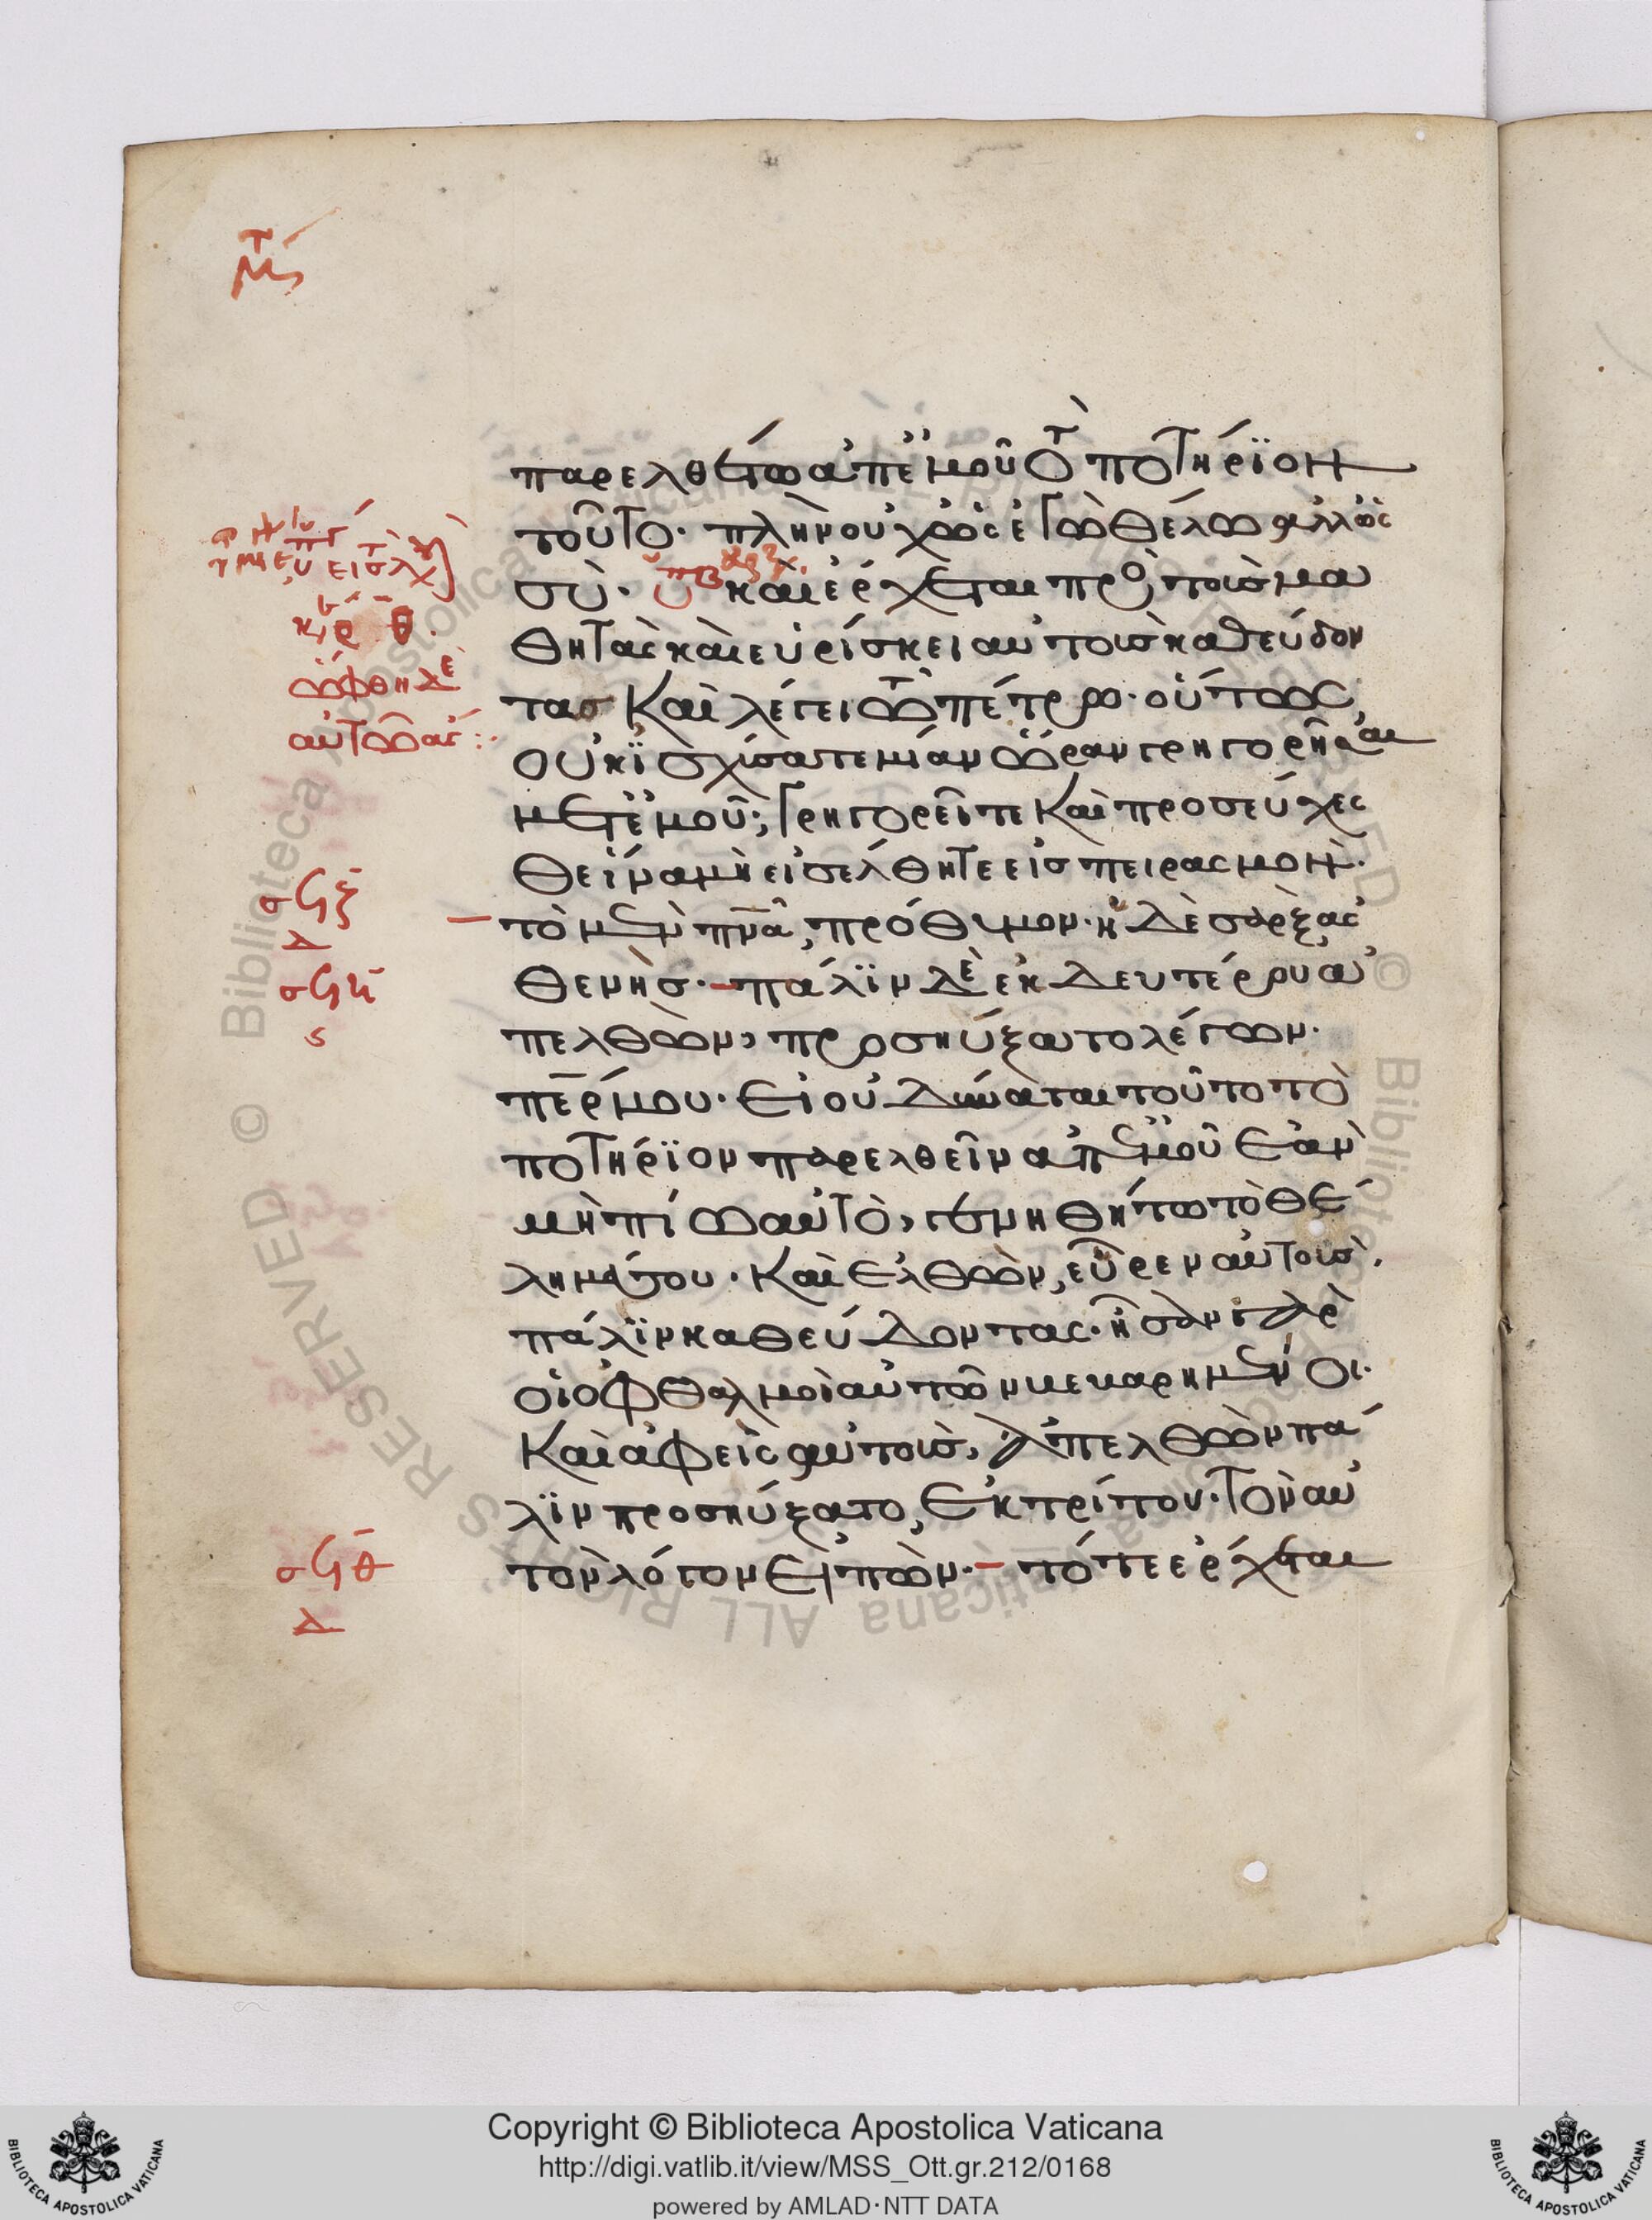 παρελθέτω ἀπ' ἐμοῦ τὸ ποτήριον
τοῦτο· πλὴν οὐχ ὡς ἐγὼ θέλω ἀλλ' ὡς
σύ· καὶ ἔρχεται πρὸς τοὺς μα
θητὰς καὶ εὑρίσκει αὐτοὺς καθεύδον
τας καὶ λέγει τῷ πέτρω· οὕτως
οὐκ ἰσχύσατε μίαν ὥραν γρηγορῆσαι
μετ' ἐμοῦ; γρηγορεῖτε καὶ προσεύχεσ
θε ἵνα μὴ εἰσέλθητε εἰς πειρασμόν·
τὸ μὲν πνᾶ, πρόθυμον· ἡ δὲ σὰρξ ἀσ
θενής· πάλιν δὲ ἐκ δευτέρου ἀ
πελθὼν, προσηύξατο λέγων·
περ μου· εἰ οὐ δύναται τοῦτο τὸ
ποτήριον παρελθεῖν ἀπ' ἐμοῦ ἐὰν
μὴ πίω αὐτὸ, γενηθήτω τὸ θέ
λημά σου· καὶ ἐλθὼν, εὗρεν αὐτοὺς,
πάλιν καθεύδοντας· ἦσαν γὰρ
οἱ ὀφθαλμοὶ αὐτῶν βεβαρημένοι·
καὶ ἀφεὶς αὐτοὺς, ἀπελθὼν πά
λιν προσηύξατο, ἐκ τρίτου· τὸν αὐ
τὸν λόγον εἰπὼν· τότε ἔρχεται
ὤφθη δὲ
αὐτῶ ἀγ
σϟζ
δ
σϟη
ϛ
σϟθ
δ
Copyright © Biblioteca Apostolica Vaticana
http://digi.vatlib.it/view/MSS_Ott.gr.212/0168
powered by AMLAD·NTT DATA
BIBLIOTECA APOSTOLICA VATICANA
BIBLIOTECA APOSTOLICA VATICANA
© Biblioteca Apostolica Vaticana ALL RIGHTS RESERVED